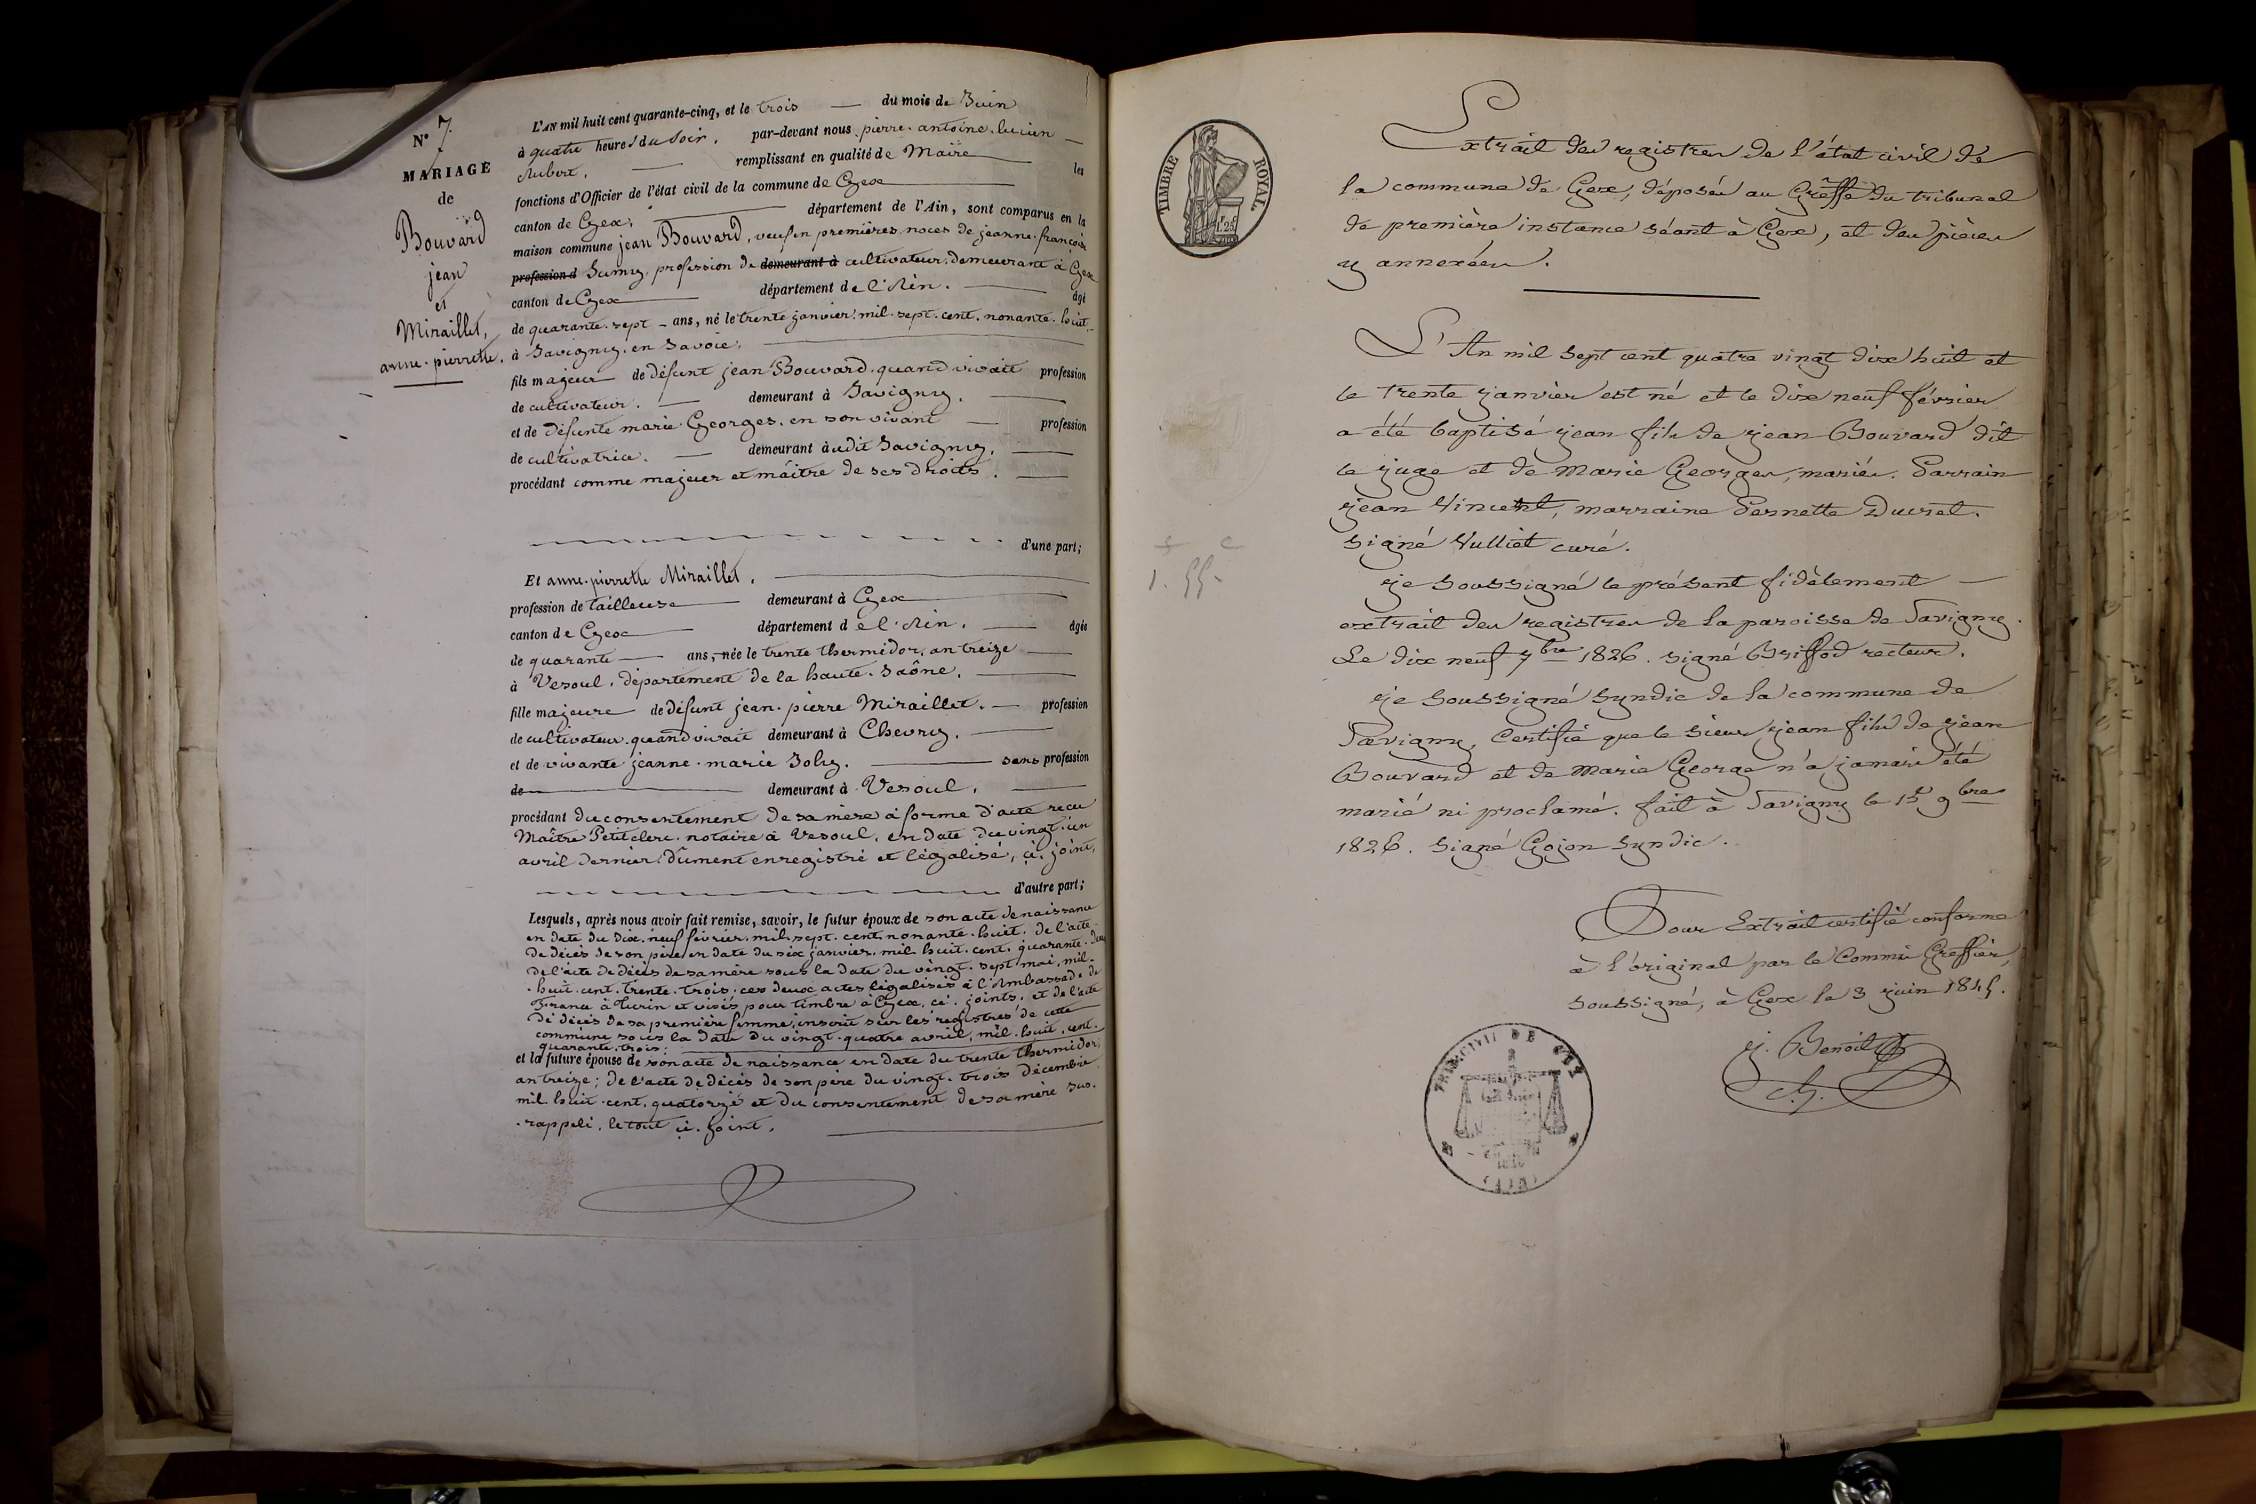 N° 7
MARIAGE
de
Bouvard
jean
et
Miraillet,
anne-pierrette.
L'AN mil huit cent quarante-cinq, et le trois du mois de Juin
à quatre heures du Soir, par-devant nous pierre antoine lucien
Aubert, remplissant en qualité de Maire les
fonctions d'Officier de l'état civil de la commune de Gex
canton de Gex, département de l'Ain, sont comparus en la
maison commune jean Bouvard, veuf en premières noces de jeanne françoise
profession d Sumy, profession de demeurant à cultivateur demeurant à Gex
canton de Gex département de l'Ain. âgé
de quarante-sept ans, né le trente janvier mil sept cent nonante huit,
à Savigny en Savoie,
fils majeur de défunt jean Bouvard, quand vivait profession
de cultivateur. demeurant à Savigny,
et de défunte marie Georges, en son vivant profession
de cultivatrice. demeurant audit Savigny.
procédant comme majeur et maître de ses droits.
d'une part;
Et anne-pierrette Miraillet,
profession de tailleuse demeurant à Gex
canton de Gex département de l'Ain. âgée
de quarante ans, née le trente thermidor, an treize
à Vesoul, département de la haute-Saône,
fille majeure de défunt jean-pierre Miraillet. profession
de cultivateur quand vivait demeurant à Chevry.
et de vivante jeanne-marie Joly. sans profession
de demeurant à Vesoul,
procédant du consentement de sa mère à forme d'acte reçu
Maître Petitclerc, notaire à Vesoul, en date du vingt-un
avril dernier, dûment enregistré et légalisé, ci-joint,
d'autre part;
Lesquels, après nous avoir fait remise, savoir, le futur époux de son acte de naissance
en date du dix-neuf février mil sept cent nonante huit, de l'acte
de décès de son père en date du six janvier mil huit cent quarante-deux
de l'acte de décès de sa mère sous la date du vingt-sept mai mil
huit cent trente-trois, ces deux actes légalisés à l'Ambassade de
France à Turin et visés pour timbre à Gex, ci-joints, et de l'acte
de décès de sa première femme, inscrit sur les registres de cette
commune sous la date du vingt-quatre avril, mil huit cent
quarante-trois;
et la future épouse de son acte de naissance en date du trente thermidor,
an treize; de l'acte de décès de son père du vingt-trois décembre
mil huit cent quatorze et du consentement de sa mère sus-
rappelé, le tout ci-joint.
TIMBRE ROYAL
Extrait des registres de l'état civil de
la commune de Gex, déposés au Greffe du tribunal
de première instance séant à Gex, et des pièces
y annexées.
L'An mil sept cent quatre vingt dix huit et
le trente janvier est né et le dix neuf février
a été baptisé jean fils de jean Bouvard dit
le juge et de Marie Georges, mariés. Parrain
jean Vincent, marraine Pernette Ducret.
signé Vulliet curé.
je soussigné le présent fidèlement
extrait des registres de la paroisse de Savigny.
Le dix neuf 7bre 1826. signé Briffod recteur.
je soussigné syndic de la commune de
Savigny, Certifie que le sieur jean fils de jean
Bouvard et de Marie George n'a jamais été
marié ni proclamé. fait à Savigny le 15 9bre
1826. signé Gojon syndic.
1. 55
Pour Extrait certifié conforme
à l'original par le Commis Greffier,
soussigné, à Gex le 3 juin 1845.
j. Benoit